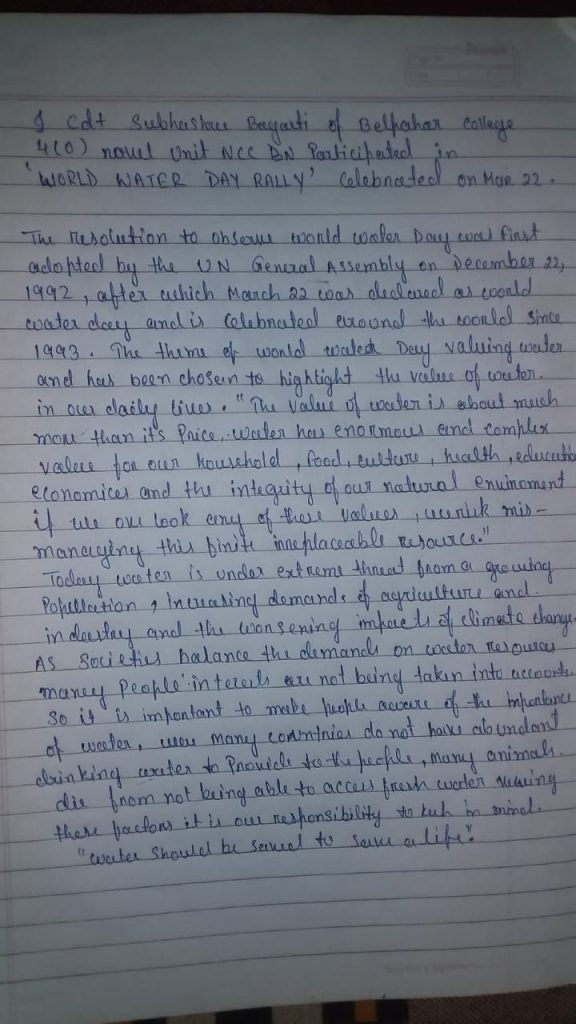 I Cdt Subhashree Bagarti of Belpahar College
4(O) naval Unit NCC BN Participated in
'WORLD WATER DAY RALLY' Celebrated on Mar 22.
The resolution to observe world water Day was first
adopted by the UN General Assembly on December 22,
1992, after which March 22 was declared as world
water day and is celebrated around the world since
1993. The theme of world water Day valuing water
and has been chosen to highlight the value of water.
in our daily lives. "The value of water is about much
more than it's Price, water has enormous and complex
value for our household, food, culture, health, education
economics and the integrity of our natural
if we over look any of these values, mis-
managing this finite irreplaceable resource."
Today water is under extreme threat from a growing
Population, Increasing demands of agriculture and
industry and the worsening impacts of climate change.
As societies balance the demands on water resources
many People' are not being taken into account.
So it is important to make people aware of the importance
of water, many countries do not have abundant
drinking water to Provide to the people, many animals
die from not being able to access fresh water
these factors it is our responsibility to in mind.
"water should be saved to save a life".